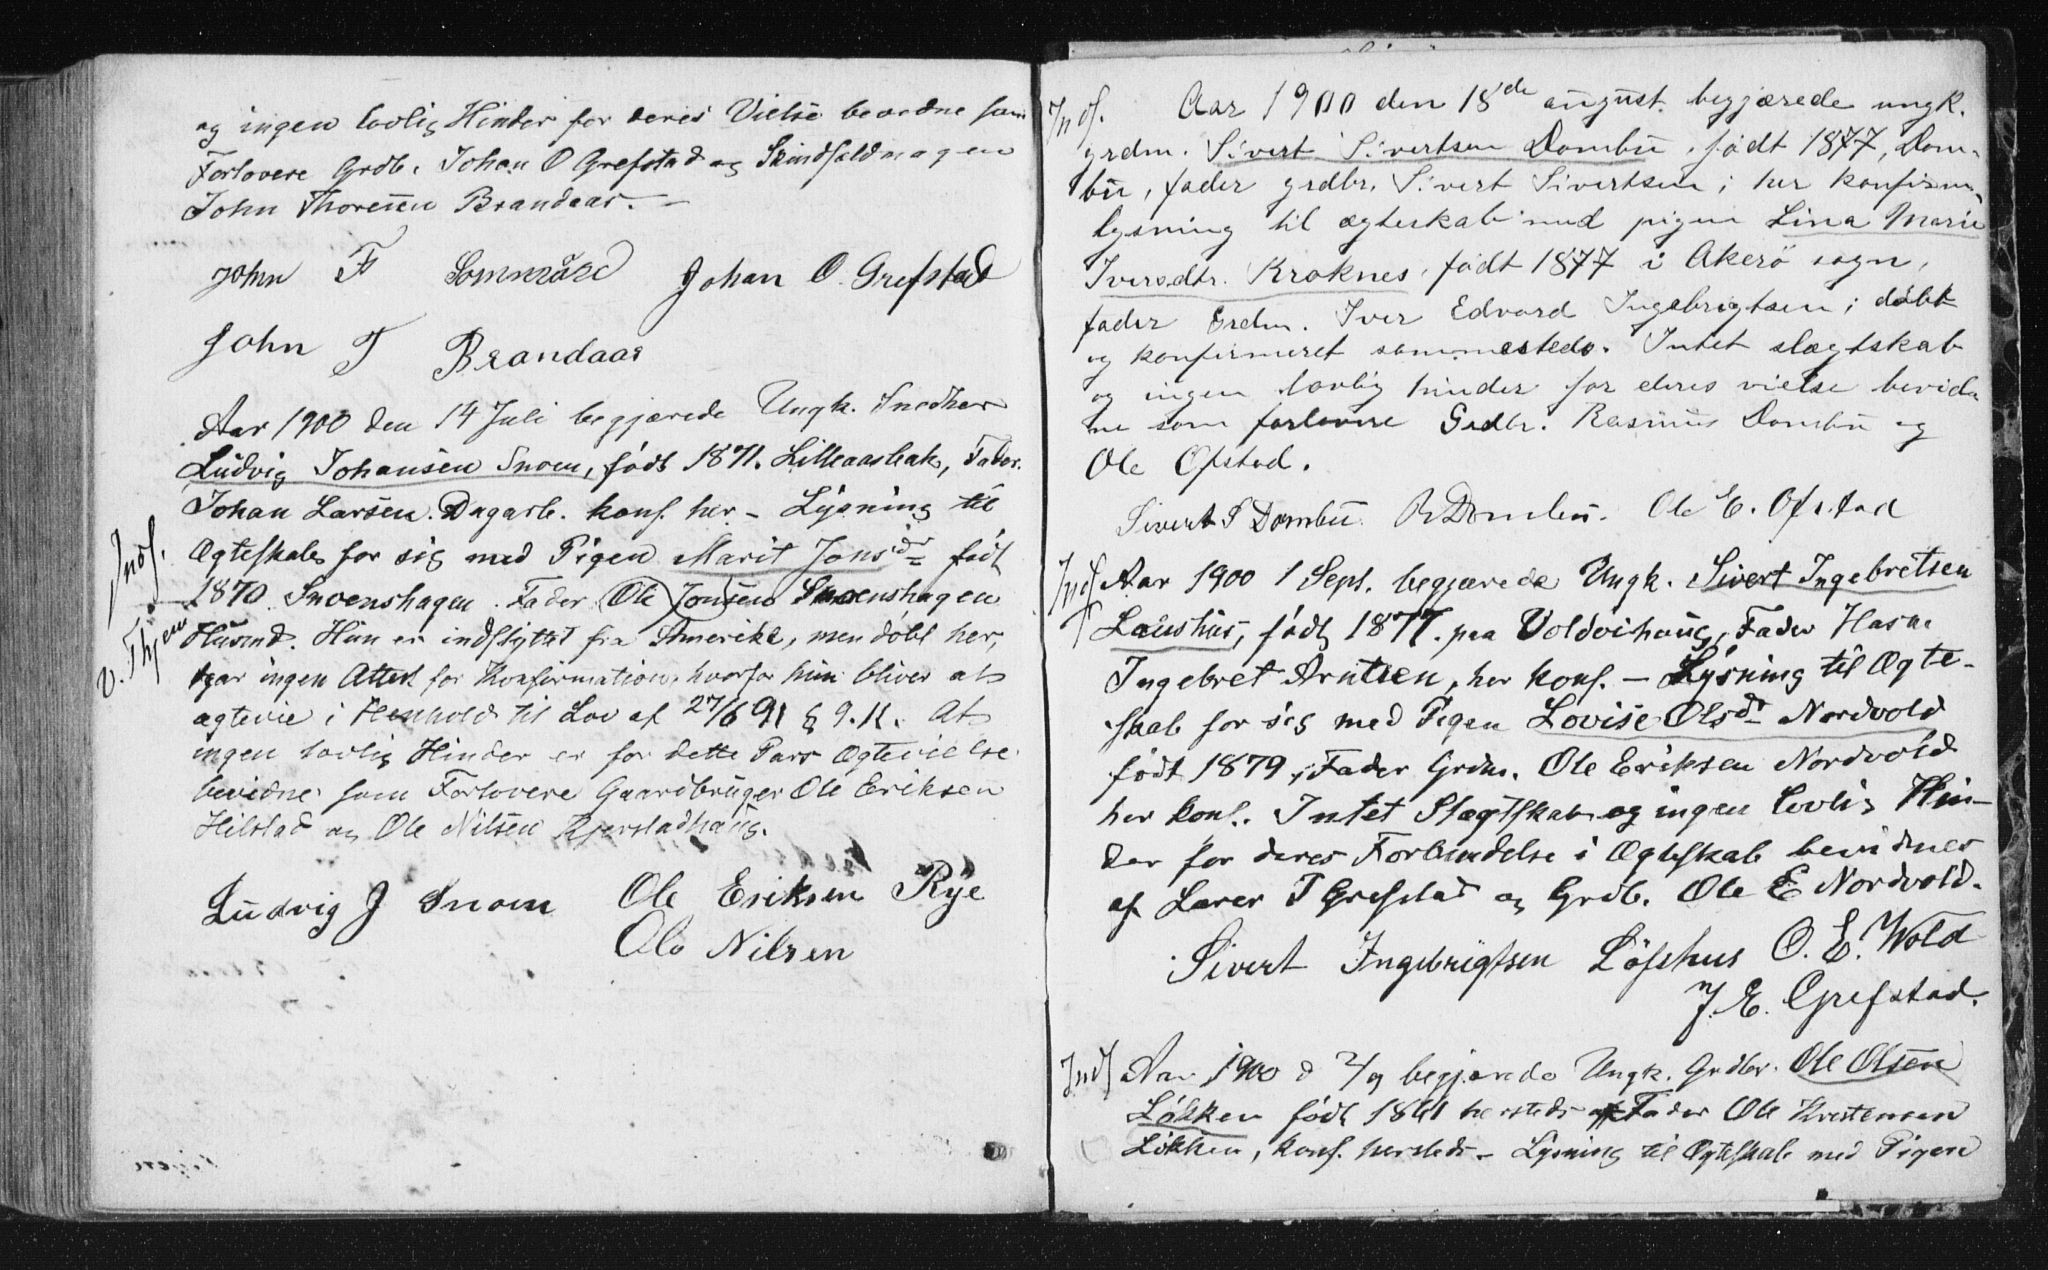 og ingen lovlig Hinder for deres Vielse bevidne som
Forlovere Grdb. Johan O Grefstad og
John Thoresen Brandaas. –
John F Sommråde Johan O. Grefstad
John T Brandaas
Aar 1900 den 14 Juli begjærede Ungk. Snedker
Ludvig Johansen Snoen, født 1871. Fader.
Johan Larsen. Dagarb. konf. her – Lysning til
Ægteskab for sig med Pigen Marit Jonsdr født
1870 Snoenshagen. Fader (Ole Jonsen) Snoenshagen
Indf.
V. Hjem
Husmd. Hun er indflyttet fra Amerika, men døbt her,
har ingen Attest for Konfirmation, hvorfor hun bliver at
ægtevie i Henhold til Lov af 27/6 91 § 9. K. At
ingen lovlig Hinder er for dette Pars Ægtevielse
bevidne som Forlovere Gaardbruger Ole Eriksen
Hilstad og Ole Nilsen Kjerstadhaug.
Ludvig J Snoen Ole Eriksen Rye
Ole Nilsen
Indf. Aar 1900 den 18de august begjærede ungk.
grdm. Sivert Sivertsen Dombu, født 1877, Dom-
bu, fader grdbr. Sivert Sivertsen; her konfirm.,
lysning til ægteskab med pigen Lina Marie
Iversdtr. Kroknes, født 1877 i Akerø sogn,
fader Grdm. Iver Edvard Ingebrigtsen; døbt
og konfirmeret sammesteds. Intet slægtskab
og ingen lovlig hinder for deres vielse bevid-
ne som forlovere Grdbr. Rasmus Dombu og
Ole Ofstad.
Sivert S Dombu R Dombu. Ole E. Ofstad
Indf Aar 1900 1 Sept. begjærede Ungk. Sivert Ingebretsen
Laushus, født 1877. paa Voldvihaug, Fader Husm
Ingebret Arntsen, her konf. – Lysning til Ægte-
skab for sig med Pigen Lovise Olsdr Nordvold
født 1879, Fader Grdm. Ole Eriksen Nordvold
her konf. Intet Slægtskab og ingen lovlig Hin-
der for deres Forbindelse i Ægteskab bevidnes
af Lærer J Grefstad og Grdb. Ole E Nordvold.
Sivert Ingebrigtsen Löfshus O. E. Wold
J. E. Grefstad.
Indf Aar 1900 d 2/9 begjærede Ungk. Grdbr. Ole Olsen
Løkken født 1861 hersteds Fader Ole Kristensen
Løkken, konf. hersteds – Lysning til Ægteskab med Pigen